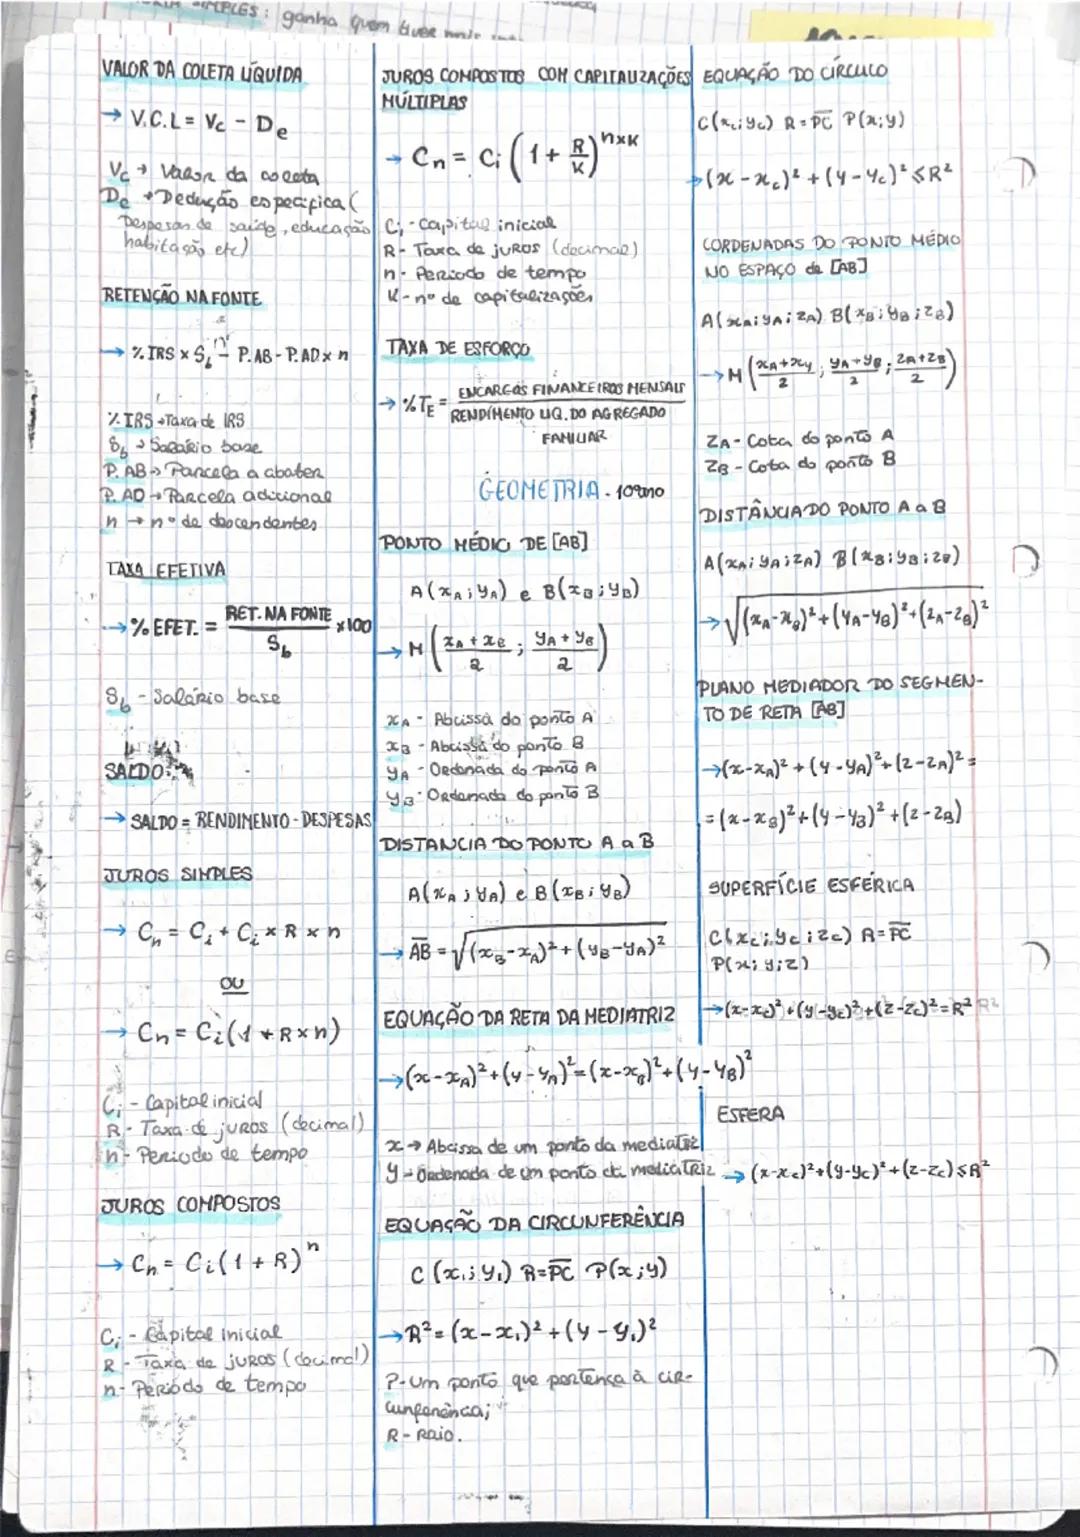 SIMPLES: ganha quem tiver mais
VALOR DA COLETA LÍQUIDA
→ V.C.L = Vc - De
Vc → Valor da coleta
De → Dedução especifica (
Despesas de saúde, educação
habitação etc)
RETENÇÃO NA FONTE
→ % IRS x Sb - P.AB - P.AD x n
% IRS → Taxa de IRS
Sb → Salário base
P. AB → Parcela a abater
P. AD → Parcela adicional
n → nº de descendentes
TAXA EFETIVA
→ % EFET. = RET. NA FONTE / Sb x100
Sb - Salário base
SALDO:
→ SALDO = RENDIMENTO - DESPESAS
JUROS SIMPLES
→ Cn = Ci + Ci x R x n
OU
→ Cn = Ci(1 + R x n)
Ci - Capital inicial
R - Taxa de juros (decimal)
n - Periodo de tempo
JUROS COMPOSTOS
→ Cn = Ci(1 + R)^n
Ci - Capital inicial
R - Taxa de juros (decimal)
n - Período de tempo
JUROS COMPOSTOS COM CAPITALIZAÇÕES
MÚLTIPLAS
→ Cn = Ci (1 + R/K)^nxK
Ci - Capital inicial
R - Taxa de juros (decimal)
n - Periodo de tempo
K - nº de capitalizações
TAXA DE ESFORÇO
→ %TE = ENCARGOS FINANCEIROS MENSAIS / RENDIMENTO LIQ. DO AGREGADO
FAMILIAR
GEOMETRIA - 10ºano
PONTO MÉDIO DE [AB]
A(xA ; yA) e B(xB ; yB)
→ M (xA + xB / 2 ; yA + yB / 2)
xA - Abcissa do ponto A
xB - Abcissa do ponto B
yA - Ordenada do ponto A
yB - Ordenada do ponto B
DISTANCIA DO PONTO A a B
A(xA ; yA) e B(xB ; yB)
→ AB = √(xB - xA)² + (yB - yA)²
EQUAÇÃO DA RETA DA MEDIATRIZ
→ (x - xA)² + (y - yA)² = (x - xB)² + (y - yB)²
x → Abcissa de um ponto da mediatriz
y - Ordenada de um ponto da mediatriz
EQUAÇÃO DA CIRCUNFERÊNCIA
C (x₁; y₁) R=PC P(x ; y)
→ R² = (x - x₁)² + (y - y₁)²
P - Um ponto que pertença à cir-
cunferência;
R - Raio.
EQUAÇÃO DO CÍRCULO
C(xc ; yc) R = PC P(x ; y)
→ (x - xc)² + (y - yc)² ⩽ R²
CORDENADAS DO PONTO MÉDIO
NO ESPAÇO de [AB]
A(xA ; yA ; zA) B(xB ; yB ; zB)
→ M (xA + xy / 2 ; yA + yB / 2 ; zA + zB / 2)
ZA - Cota do ponto A
ZB - Cota do ponto B
DISTÂNCIA DO PONTO A a B
A(xA ; yA ; zA) B(xB ; yB ; zB)
→ √(xA - xB)² + (yA - yB)² + (zA - zB)²
PLANO MEDIADOR DO SEGMEN-
TO DE RETA [AB]
→ (x - xA)² + (y - yA)² + (z - zA)² =
= (x - xB)² + (y - yB)² + (z - zB)
SUPERFÍCIE ESFÉRICA
C(xc ; yc ; zc) R = PC
P(x ; y ; z)
→ (x - xc)² + (y - yc)² + (z - zc)² = R² R²
ESFERA
→ (x - xc)² + (y - yc)² + (z - zc) ⩽ R²